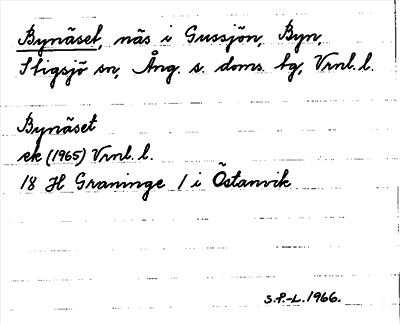 Bynäset, näs i Gussjön, Byn,
Stigsjö sn, Ång. s. doms. tg, Vrnl. l.
Bynäset
ek (1965) Vrnl. l.
18 H Graninge 1 i Östanvik
S.P.-L. 1966.